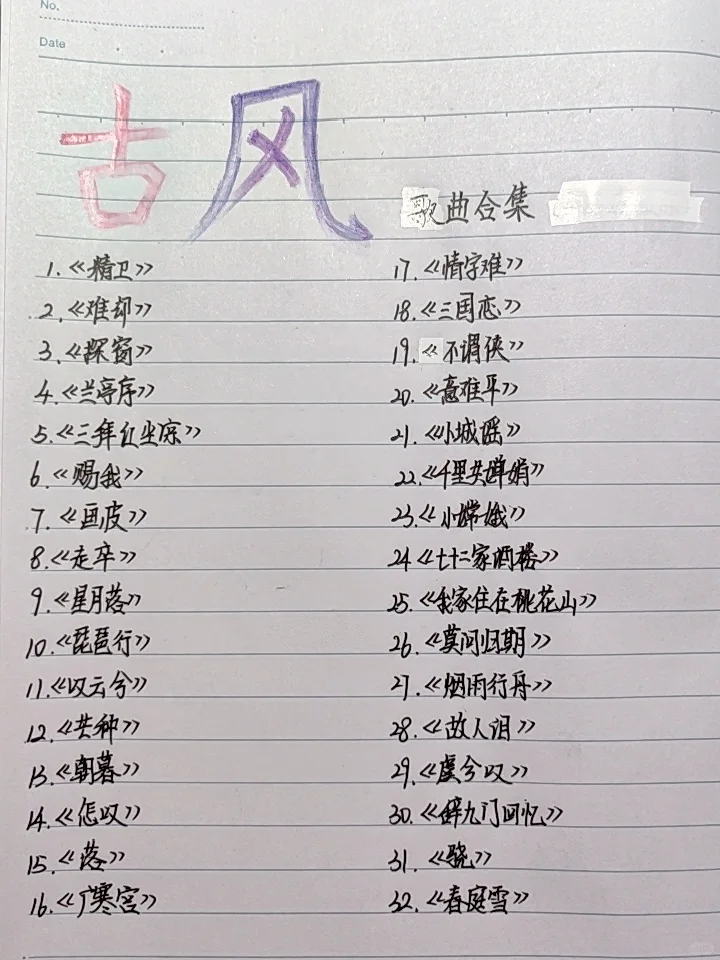 No.
Date
古风
歌曲合集
1.《精卫》
2.《难却》
3.《探窗》
4.《兰亭序》
5.《三拜红尘凉》
6.《赐我》
7.《画皮》
8.《走卒》
9.《星月落》
10.《琵琶行》
11.《叹云兮》
12.《芒种》
13.《朝暮》
14.《怎叹》
15.《落》
16.《广寒宫》
17.《情字难》
18.《三国恋》
19.《不谓侠》
20.《意难平》
21.《小城谣》
22.《千里共婵娟》
23.《小嫦娥》
24《七十二家酒楼》
25.《我家住在桃花山》
26.《莫问归期》
27.《烟雨行舟》
28.《故人泪》
29.《虞兮叹》
30.《辞九门回忆》
31.《骁》
32.《春庭雪》